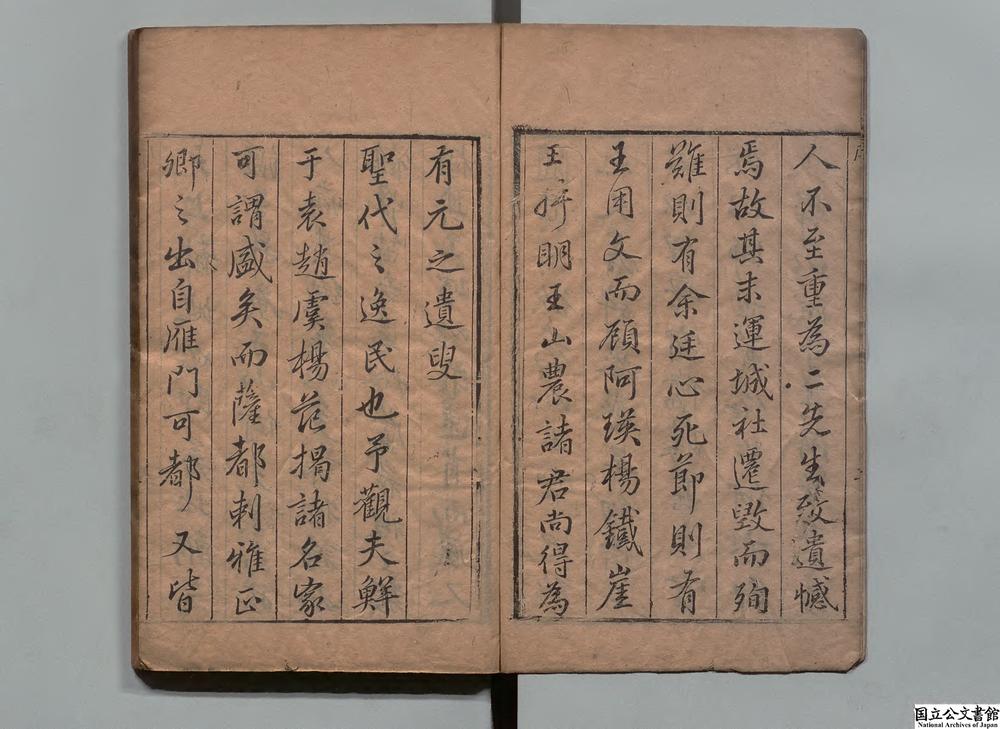 人不至重為二先生致遺憾
焉故其末運城社遷毀而殉
難則有余廷心死節則有
王用文而顧阿瑛楊鐵崖
王眀王山農諸君尚得為
有元之遺叟
聖代之逸民也予觀夫鮮
于袁趙虞楊范揭諸名家
可謂盛矣而薩都剌雅正
卿之出自雁門可都又皆
国立公文書館
National Archives of Japan